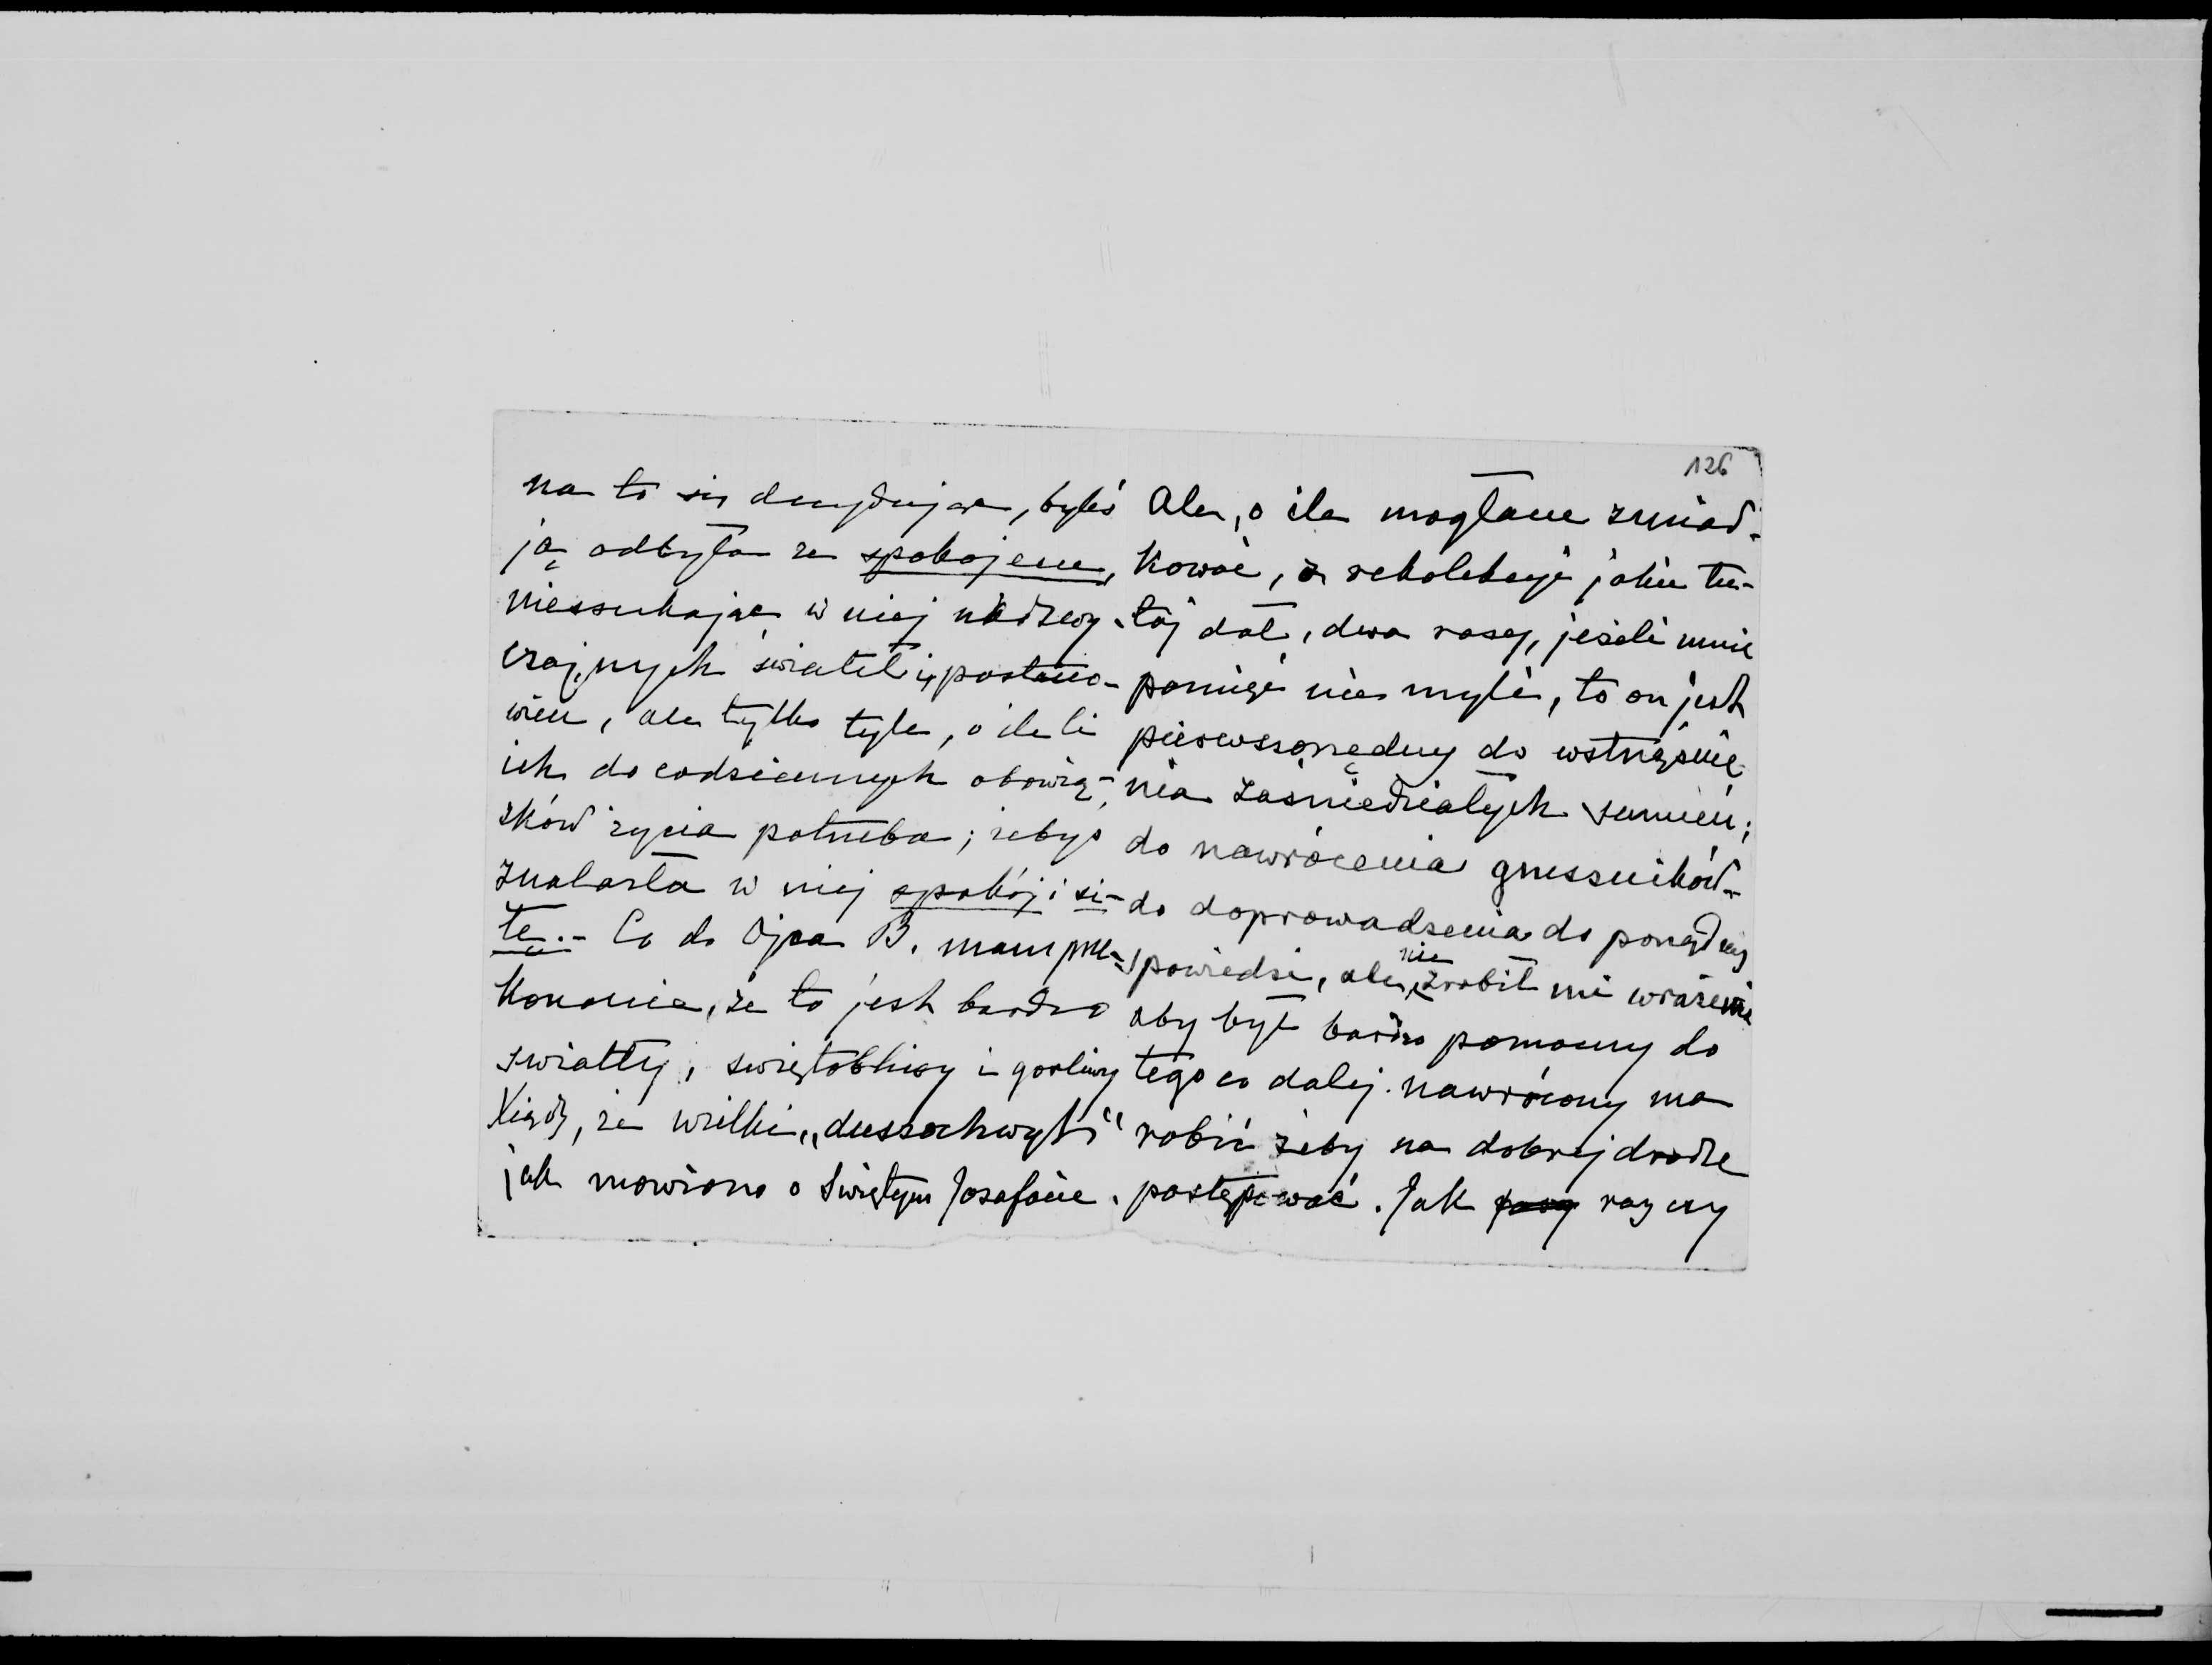 126
na to się decydując, byleś
ją odbyła ze spokojem,
nieszukając w niej nadzwy-
czajnych świateł i postano-
wień, ale tylko tyle, o ile li
ich do codziennych obowią-
zków życia potrzeba; żebyś
znalazła w niej spokój i si-
łę.- Co do Ojca B. mam prze-
konanie, że to jest bardzo
swiatły, swiętobliwy i gorliwy
Xiądz, że wielki „duszochwyt"
jak mowiono o Swiętym Jozafacie.
Ale, o ile mogłam zmiar-
kować, z rekolekcyi jakie tu-
táj dał, dwa razy, jeżeli mnie
pamięć nie myli, to on jest
pierwszorzędny do wstrząśnię-
nia zaśniedziałych sumień;
do nawrócenia grzeszników-
do doprowadzenia do porządnej
spowiedzi, ale nie zrobił mi wrażenie
aby był bardzo pomocny do
tego co dalej nawrócony ma
robić żeby na dobrej drodze
postępować. Jak razy czy